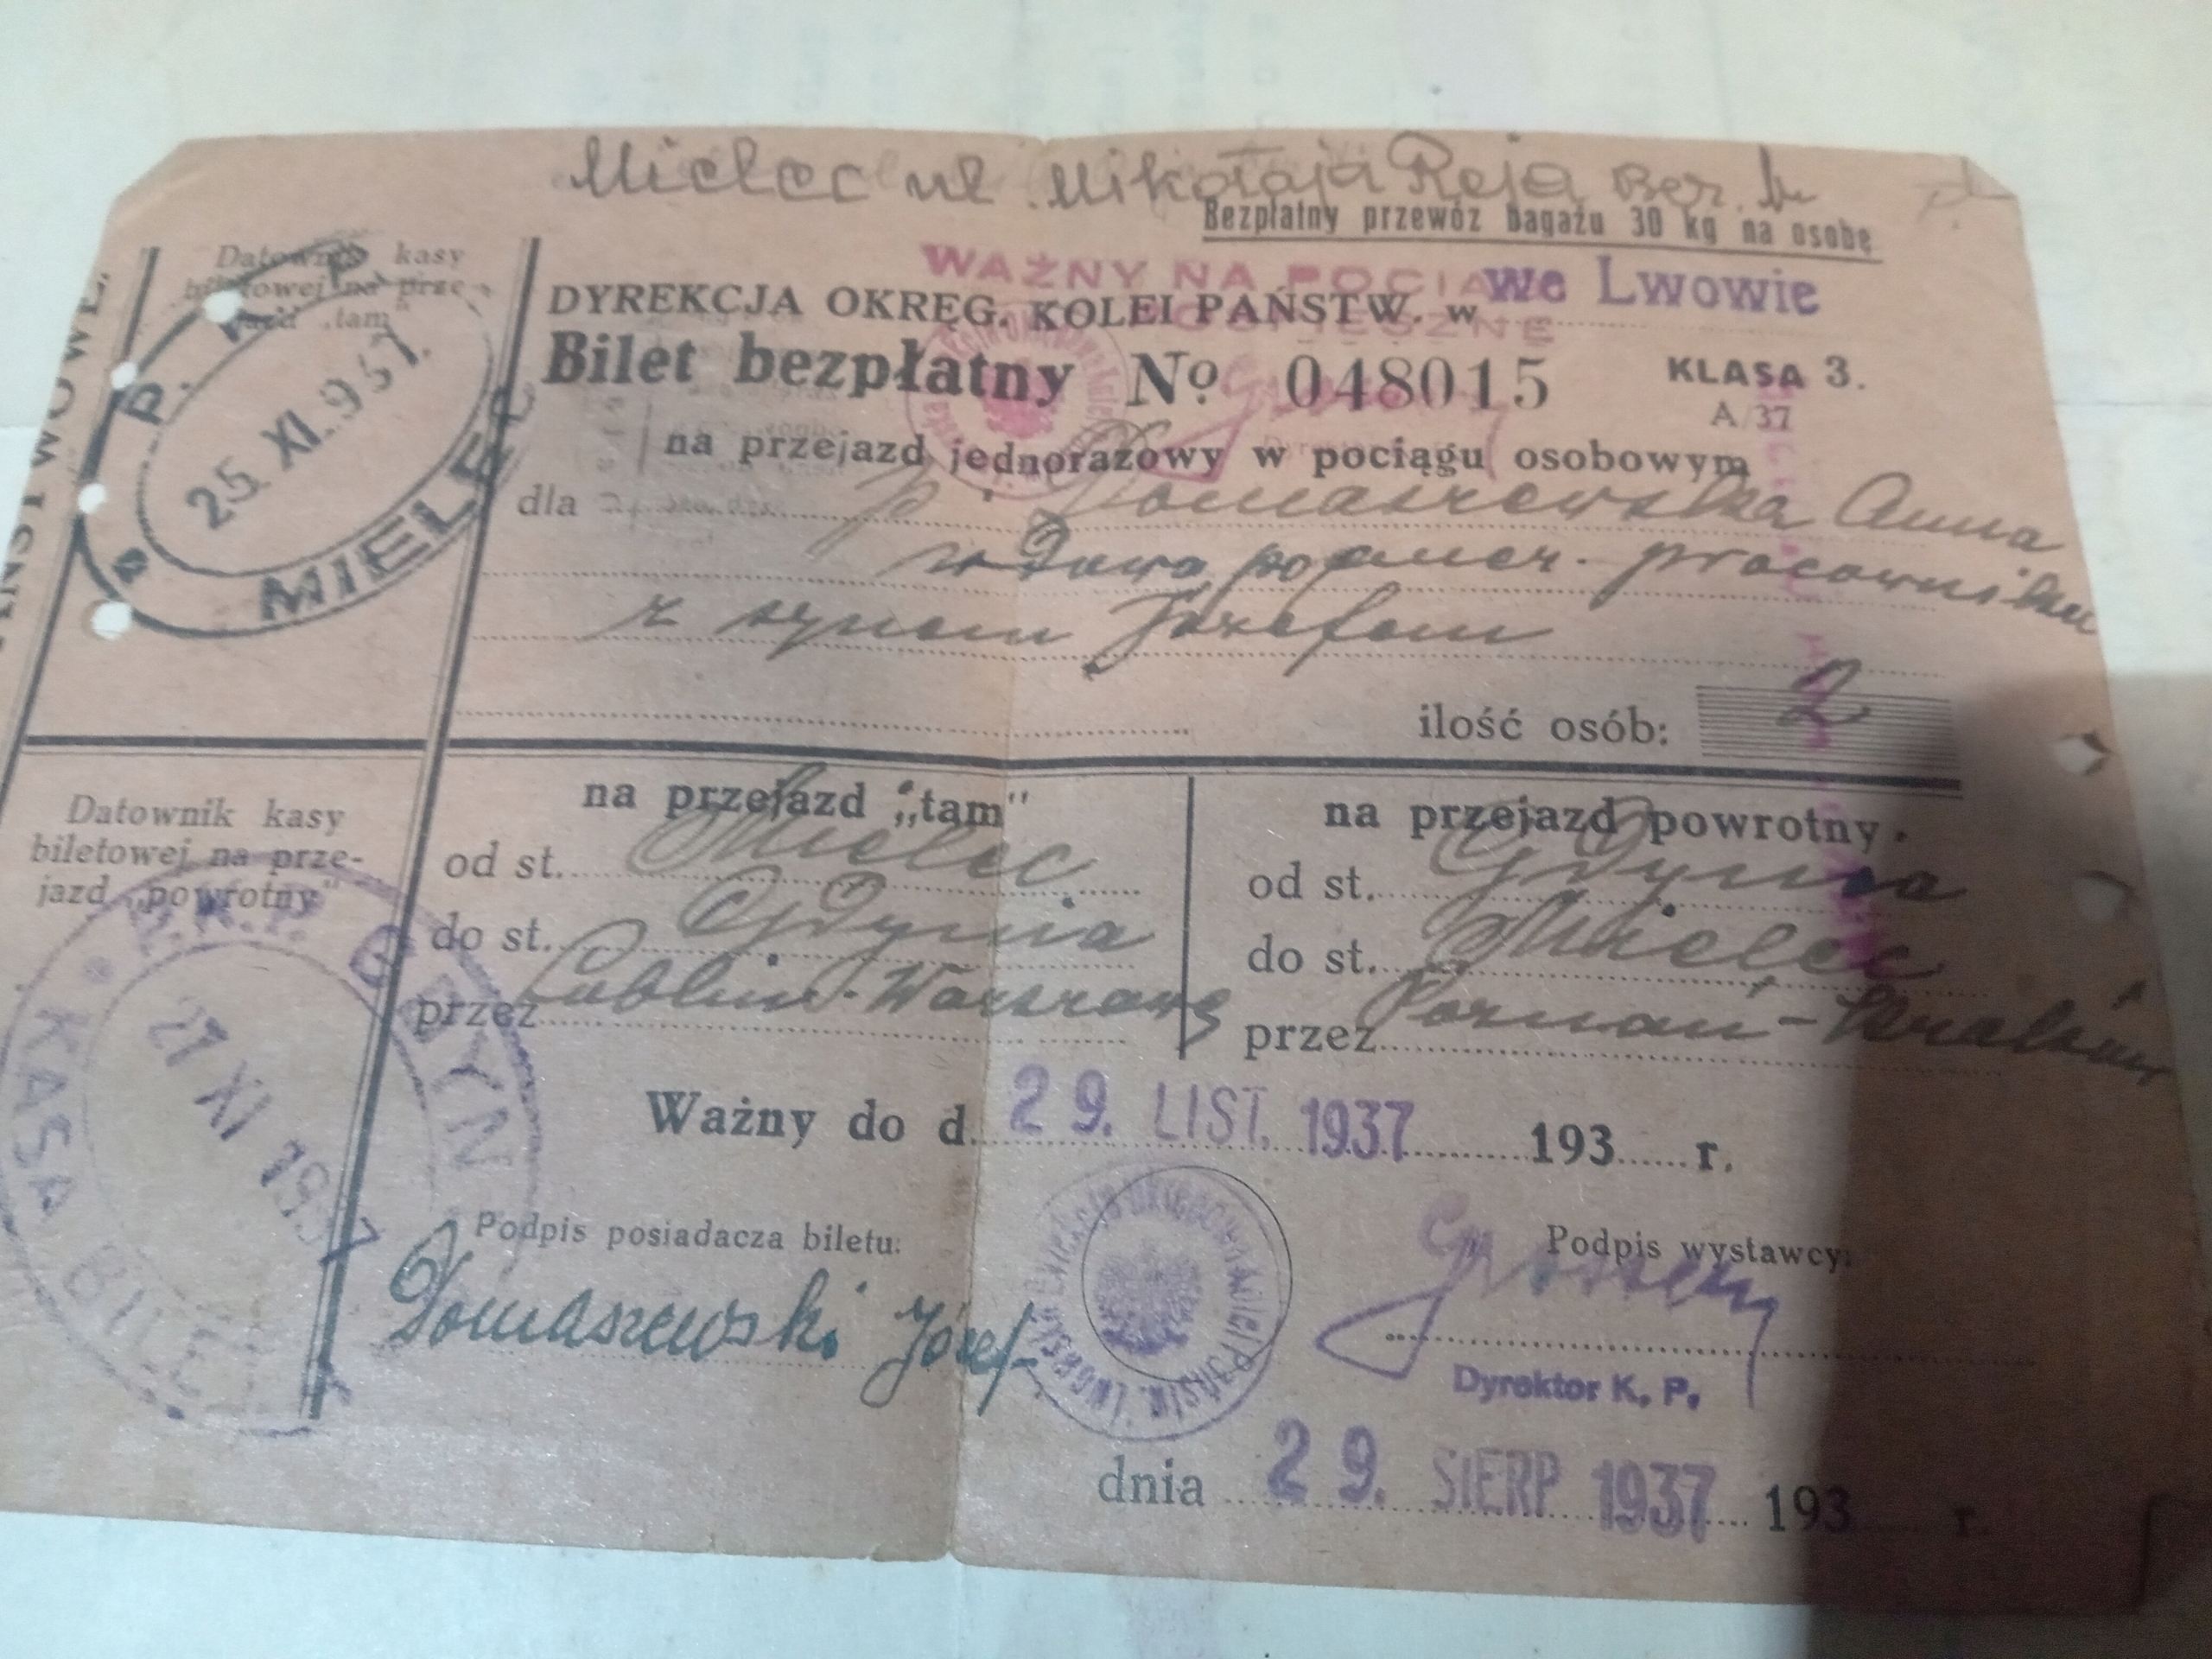 Mielec ul. Mikołaja Reja Ber.
Bezpłatny przewóz bagażu 30 kg na osobę
WAŻNY NA POCIĄG
POSPIESZNE
DYREKCJA OKRĘG. KOLEI PAŃSTW. w we Lwowie
Bilet bezpłatny No 048015 KLASA 3.
A/37
na przejazd jednorazowy w pociągu osobowym
dla p. Domaszewska Anna
wdowa po emer. pracowniku
z synem Józefem
ilość osób: 2
Datownik kasy
biletowej na prze-
jazd „tam"
P. K. P.
25. XI. 937.
MIELEC
na przejazd „tam"
od st. Mielec
do st. Gdynia
przez Lublin-Warszawę
na przejazd powrotny.
od st. Gdynia
do st. Mielec
przez Poznań-Kraków
Datownik kasy
biletowej na prze-
jazd „powrotny"
P.K.P. GDYNIA
27 XI 1937
KASA BILET
Ważny do d. 29. LIST. 1937 193 r.
Podpis posiadacza biletu:
Domaszewski Józef
Podpis wystawcy:
Dyrektor K. P.
dnia 29. SIERP 1937 193 r.